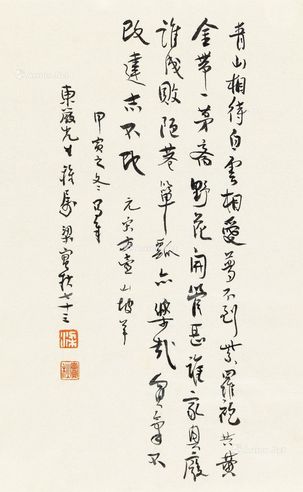 青山相待白雲相愛夢不到紫羅袍共黃
金帶一茅齋野花開管甚誰家興廢
誰成敗陋巷簞瓢亦樂哉貧氣不
改達志不改 元宋方壺山坡羊
甲寅之冬寫奉
東 先生雅屬 梁實秋七十三